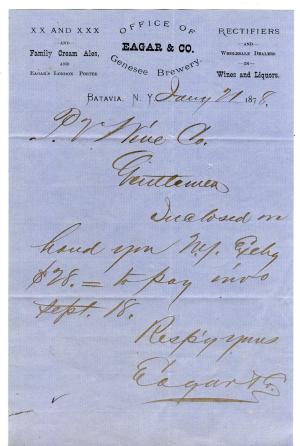 OFFICE OF
EAGAR & CO.
Genesee Brewery.
XX AND XXX
—AND—
Family Cream Ales,
AND
EAGAR'S LONDON PORTER
RECTIFIERS
—AND—
WHOLESALE DEALERS
—IN—
Wines and Liquors.
BATAVIA, N. Y. Jany 21 1878.
P. V. Wine Co.
Gentlemen
Inclosed we
hand you N.Y. Exchg
$28.= to pay invo
Sept. 18.
Resp'y yours
Eagar & Co.